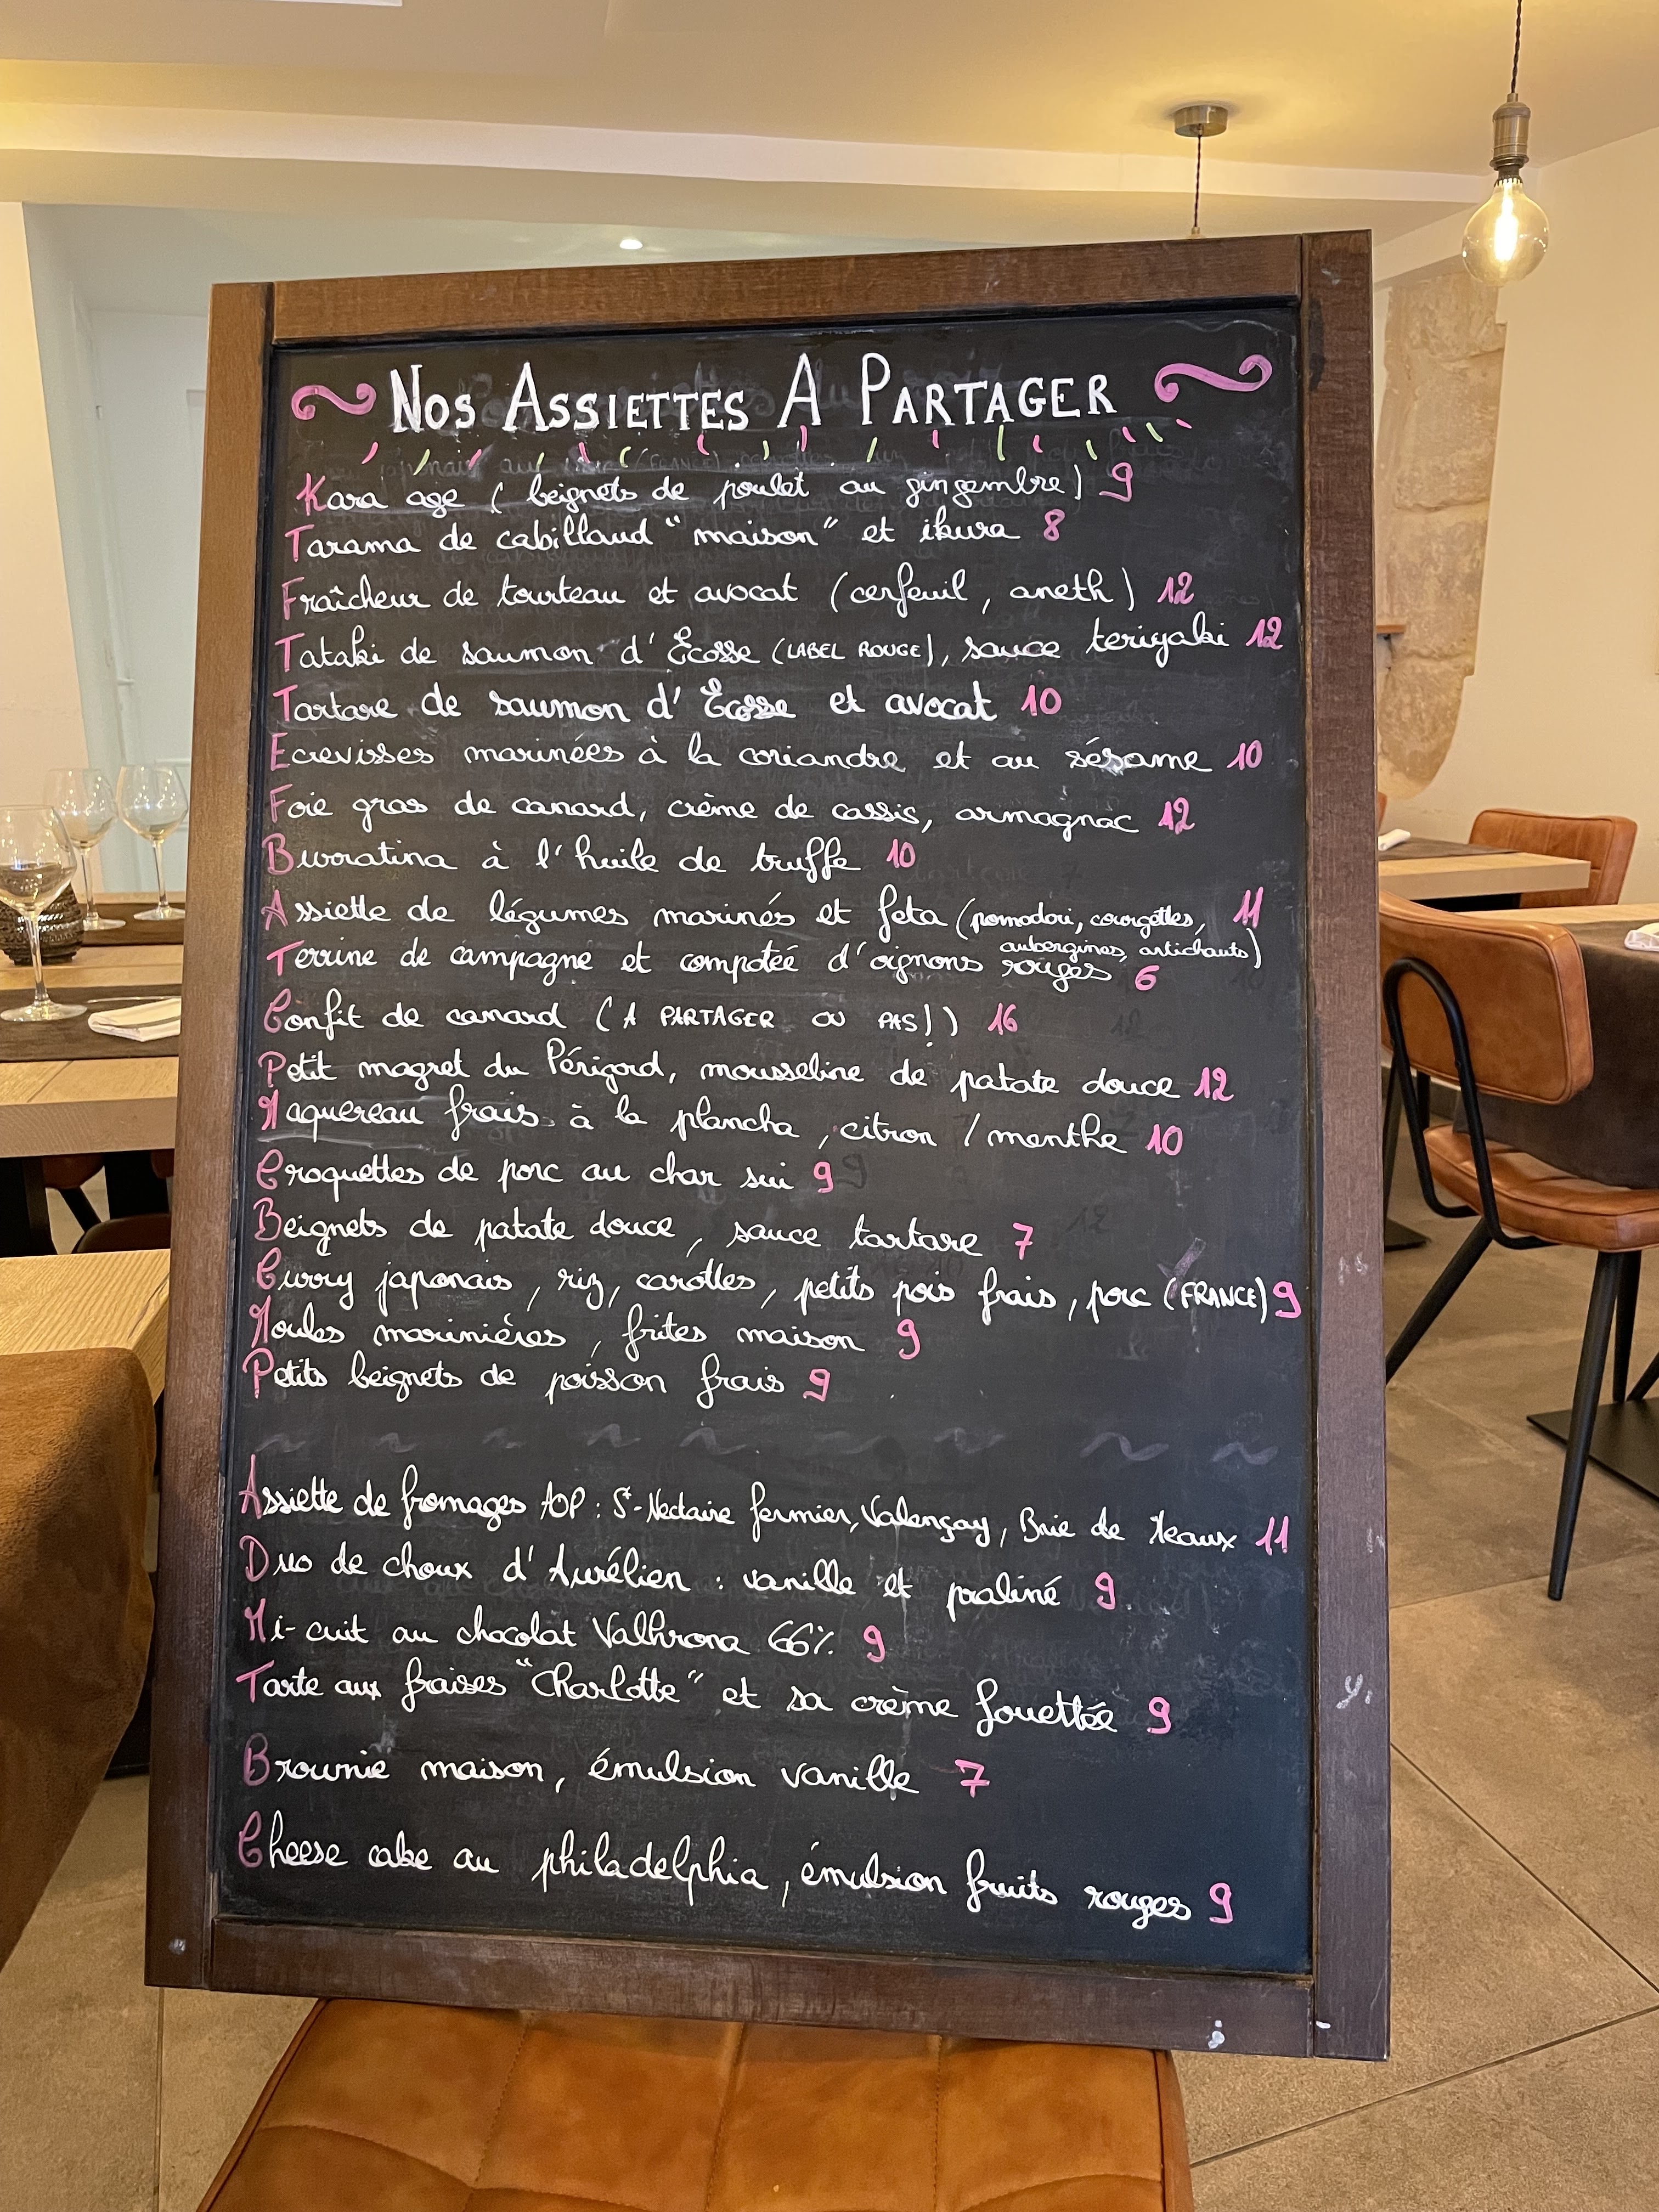 Nos Assiettes A Partager
Kara age ( beignets de poulet au gingembre ) 9
Tarama de cabillaud "maison" et ikura 8
Fraîcheur de tourteau et avocat (cerfeuil, aneth) 12
Tataki de saumon d'Écosse (LABEL ROUGE), sauce teriyaki 12
Tartare de saumon d'Écosse et avocat 10
Ecrevisses marinées à la coriandre et au sésame 10
Foie gras de canard, crème de cassis, armagnac 12
Burratina à l'huile de truffe 10
Assiette de légumes marinés et feta (pomodori, courgettes, 11
aubergines, artichauts)
Terrine de campagne et compotée d'oignons rouges 6
Confit de canard (A PARTAGER OU PAS!) 16
Petit magret du Périgord, mousseline de patate douce 12
Maquereau frais à la plancha, citron / menthe 10
Croquettes de porc au char sui 9
Beignets de patate douce, sauce tartare 7
Curry japonais, riz, carottes, petits pois frais, porc (FRANCE) 9
Moules marinières, frites maison 9
Petits beignets de poisson frais 9
Assiette de fromages AOP : St-Nectaire fermier, Valençay, Brie de Meaux 11
Duo de choux d'Aurélien : vanille et praliné 9
Mi-cuit au chocolat Valhrona 66% 9
Tarte aux fraises "Charlotte" et sa crème fouettée 9
Brownie maison, émulsion vanille 7
Cheese cake au philadelphia, émulsion fruits rouges 9